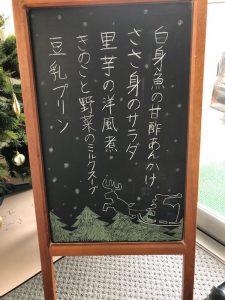 白身魚の甘酢あんかけ
ささ身のサラダ
里芋の洋風煮
きのこと野菜のミルクスープ
豆乳プリン